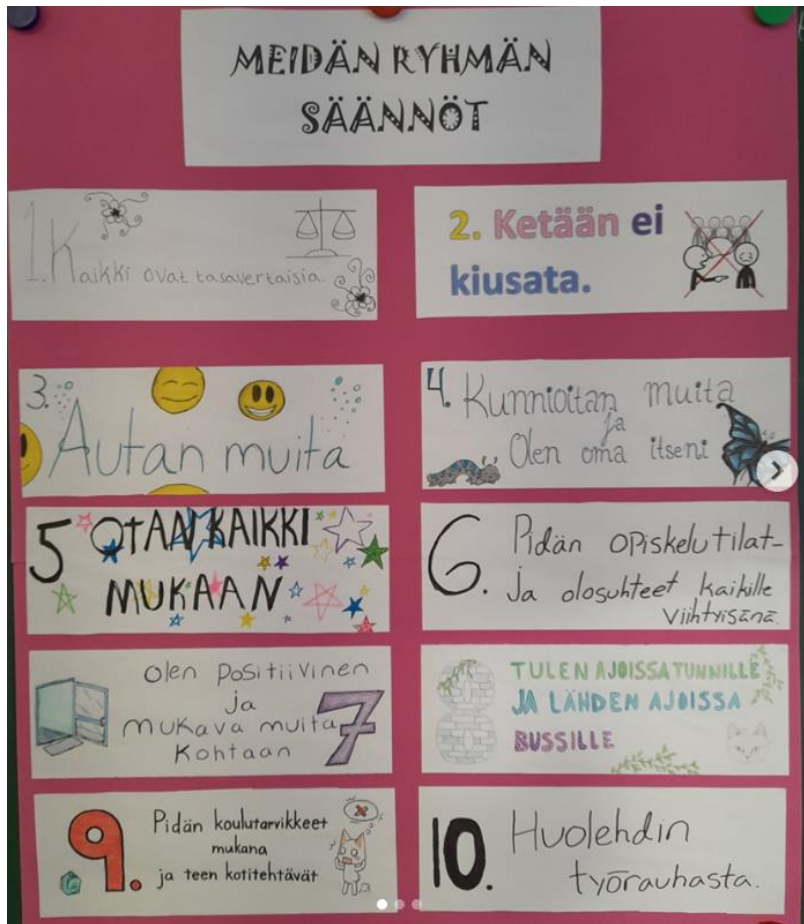 MEIDÄN RYHMÄN
SÄÄNNÖT
1. Kaikki ovat tasavertaisia.
2. Ketään ei
kiusata.
3.
Autan muita
4. Kunnioitan muita
ja
Olen oma itseni
5 OTAN KAIKKI
MUKAAN
6. Pidän opiskelutilat-
ja olosuhteet kaikille
viihtyisänä.
olen positiivinen
ja
mukava muita
kohtaan
7
8 TULEN AJOISSA TUNNILLE
JA LÄHDEN AJOISSA
BUSSILLE
9. Pidän koulutarvikkeet
mukana
ja teen kotitehtävät
10. Huolehdin
työrauhasta.